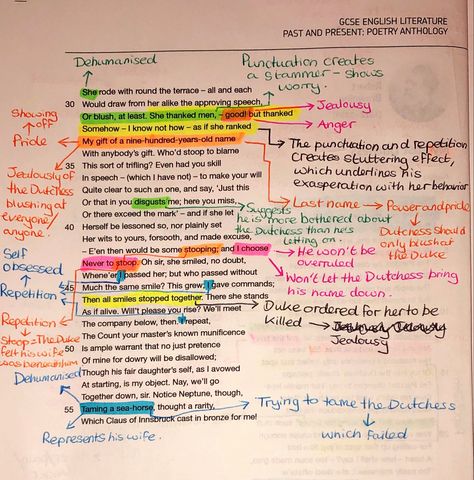 GCSE ENGLISH LITERATURE
PAST AND PRESENT: POETRY ANTHOLOGY
Dehumanised
Punctuation creates
a Stammer - shows
worry.
She rode with round the terrace – all and each
30 Would draw from her alike the approving speech,
Or blush, at least. She thanked men, – good! but thanked
Somehow – I know not how – as if she ranked
My gift of a nine-hundred-years-old name
With anybody's gift. Who'd stoop to blame
35 This sort of trifling? Even had you skill
In speech – (which I have not) – to make your will
Quite clear to such an one, and say, 'Just this
Or that in you disgusts me; here you miss,
Or there exceed the mark' – and if she let
40 Herself be lessoned so, nor plainly set
Her wits to yours, forsooth, and made excuse,
– E'en then would be some stooping; and I choose
Never to stoop. Oh sir, she smiled, no doubt,
Whene'er I passed her; but who passed without
45 Much the same smile? This grew; I gave commands;
Then all smiles stopped together. There she stands
As if alive. Will't please you rise? We'll meet
The company below, then. I repeat,
The Count your master's known munificence
50 Is ample warrant that no just pretence
Of mine for dowry will be disallowed;
Though his fair daughter's self, as I avowed
At starting, is my object. Nay, we'll go
Together down, sir. Notice Neptune, though,
55 Taming a sea-horse, thought a rarity,
Which Claus of Innsbruck cast in bronze for me!
Showing
off
Pride
Jealousy of
the Dutchess
blushing at
everyone/
anyone.
Self
obsessed
Repetition
Repetition
Stoop = The Duke
felt his wife
was beneath him
Dehumanised
Represents his wife.
Jealousy
Anger
The punctuation and repetition
creates stuttering effect,
which underlines his
exasperation with her behavior
Last name → Power and pride
Dutchess
should
only blush at
the Duke
Suggests
he is more bothered about
the Dutchess than he's
letting on.
He won't be
overruled
Won't let the Dutchess bring
his name down.
Duke ordered for her to be
killed → Jealousy Jealousy
Jealousy
Trying to tame the Dutchess
which failed